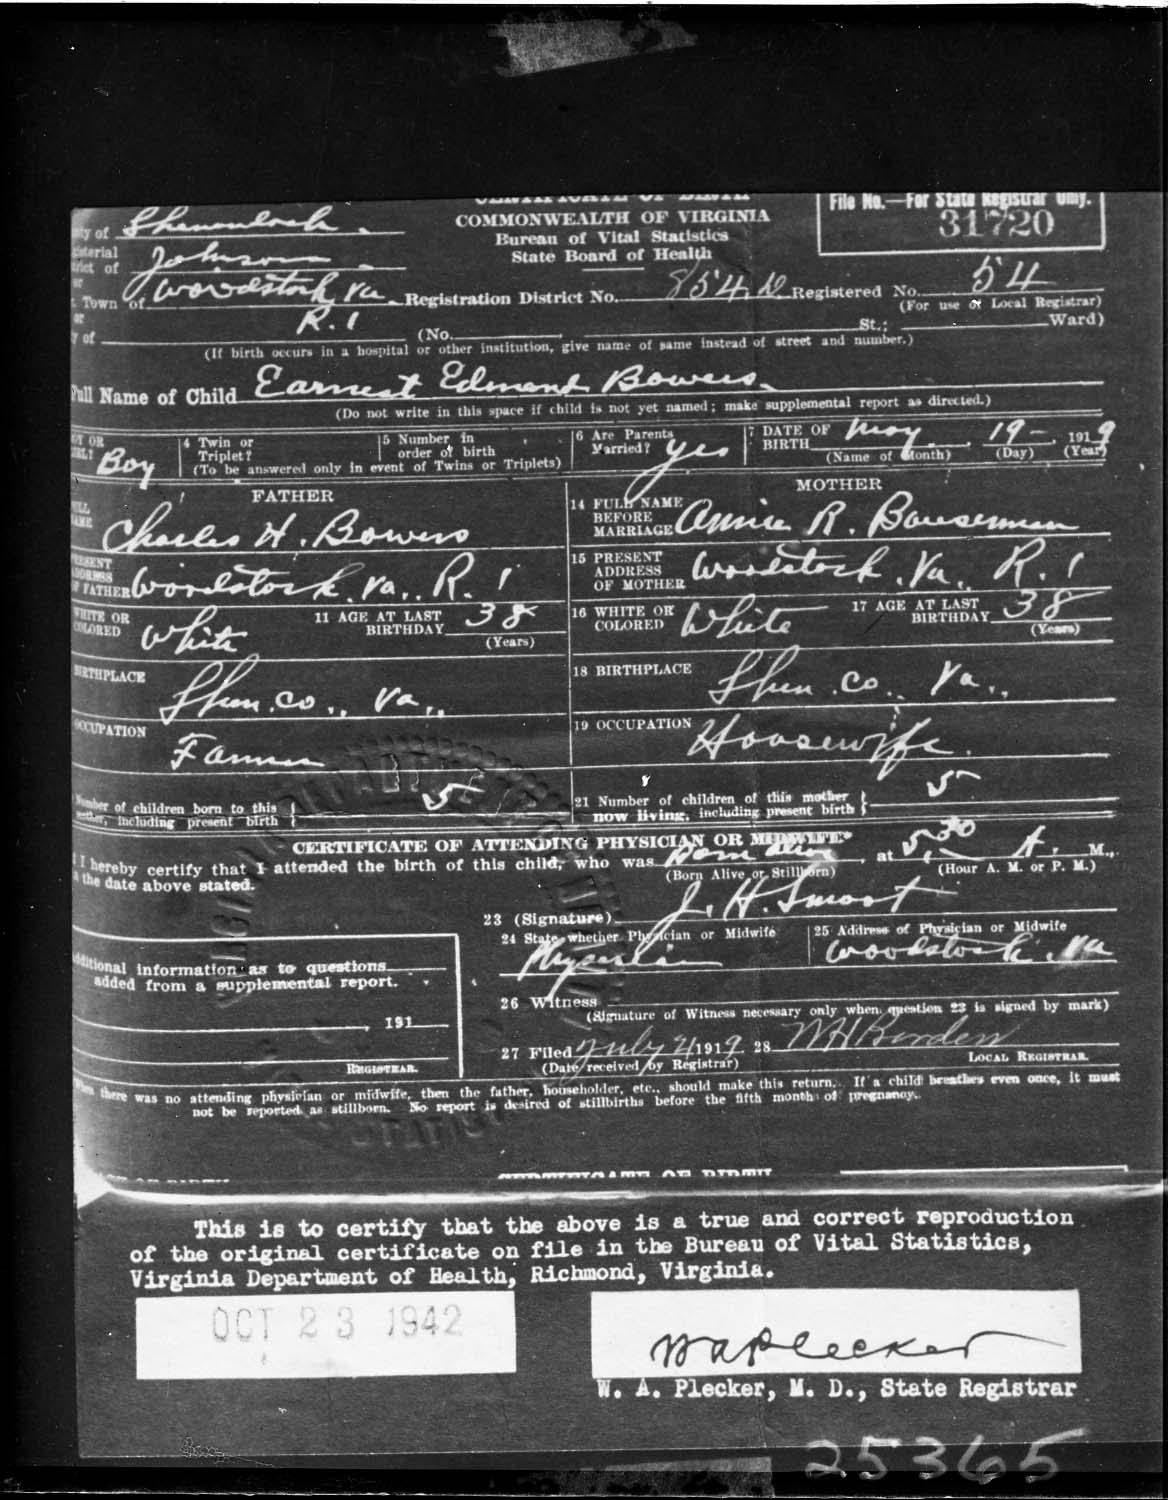 CERTIFICATE OF BIRTH
COMMONWEALTH OF VIRGINIA
Bureau of Vital Statistics
State Board of Health
File No.—For State Registrar Only.
31720
ty of Shenandoah
gisterial
trict of Johnson
or
. Town of Woodstock, Va Registration District No. 854 Registered No. 54
(For use of Local Registrar)
or
y of R. 1 (No. St.; Ward)
(If birth occurs in a hospital or other institution, give name of same instead of street and number.)
Full Name of Child Earnest Edmond Bowers
(Do not write in this space if child is not yet named; make supplemental report as directed.)
OY OR
IRL? Boy
4 Twin or
Triplet?
5 Number in
order of birth
(To be answered only in event of Twins or Triplets)
6 Are Parents
Married? Yes
7 DATE OF
BIRTH May 19 1919
(Name of Month) (Day) (Year)
FATHER
ULL
AME Charles H. Bowers
RESENT
ADDRESS
OF FATHER Woodstock, Va., R. 1
WHITE OR
COLORED White
11 AGE AT LAST
BIRTHDAY 38
(Years)
BIRTHPLACE Shen. Co., Va.,
OCCUPATION Farmer
MOTHER
14 FULL NAME
BEFORE
MARRIAGE Annie R. Bauserman
15 PRESENT
ADDRESS
OF MOTHER Woodstock, Va., R. 1
16 WHITE OR
COLORED White
17 AGE AT LAST
BIRTHDAY 38
(Years)
18 BIRTHPLACE Shen. Co., Va.,
19 OCCUPATION Housewife.
Number of children born to this
mother, including present birth 5
21 Number of children of this mother
now living, including present birth 5
CERTIFICATE OF ATTENDING PHYSICIAN OR MIDWIFE*
I hereby certify that I attended the birth of this child, who was Born Alive, at 5:30 A. M.,
(Born Alive or Stillborn) (Hour A. M. or P. M.)
the date above stated.
23 (Signature) J. H. Smoot
24 State whether Physician or Midwife
Physician
25 Address of Physician or Midwife
Woodstock, Va
dditional information as to questions
added from a supplemental report.
, 191
REGISTRAR.
26 Witness
(Signature of Witness necessary only when question 23 is signed by mark)
27 Filed July 2, 1919. 28 WH Borden
(Date received by Registrar) LOCAL REGISTRAR.
When there was no attending physician or midwife, then the father, householder, etc., should make this return. If a child breathes even once, it must
not be reported as stillborn. No report is desired of stillbirths before the fifth month of pregnancy.
CERTIFICATE OF BIRTH
This is to certify that the above is a true and correct reproduction
of the original certificate on file in the Bureau of Vital Statistics,
Virginia Department of Health, Richmond, Virginia.
OCT 23 1942
W A Plecker
W. A. Plecker, M. D., State Registrar
25365